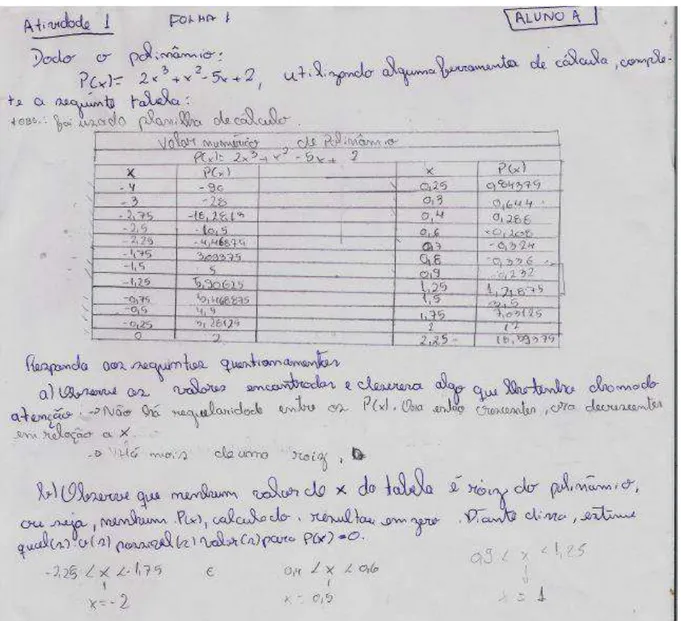 Atividade 1 FOLHA 1 ALUNO A
Dado o polinâmio:
P(x)= 2x³+x²-5x+2, utilizando alguma ferramenta de cálculo, comple-
te a seguinte tabela:
foi usado planilha de cálculo.
Valor numérico de Polinâmio
P(x)= 2x³+x²-5x+ 2
x P(x) x P(x)
-4 -90 0,25 0,84375
-3 -28 0,3 0,644
-2,75 -18,2813 0,4 0,288
-2,5 -10,5 0,6 -0,208
-2,25 -4,46875 0,7 -0,324
-1,75 3,09375 0,8 -0,336
-1,5 5 0,9 -0,232
-1,25 5,90625 1,25 1,21875
-0,75 5,468875 1,5 3,5
-0,5 4,5 1,75 7,03125
-0,25 3,28125 2 12
0 2 2,25 18,59375
Responda aos seguintes questionamentos
a) Observe os valores encontrados e descreva algo que lhe tenha chamado
atenção. → Não há regularidade entre os P(x). Ora estão crescentes, ora decrescentes
em relação a x.
→ Há mais de uma raiz.
b) Observe que nenhum valor de x da tabela é raiz do polinâmio,
ou seja, nenhum P(x), calculado, resultou em zero. Diante disso, estime
qual(s) o(s) possível(s) valor(s) para P(x)=0.
-2,25 < x < -1,75 e 0,4 < x < 0,6 0,9 < x < 1,25
x=-2 x=0,5 x = 1